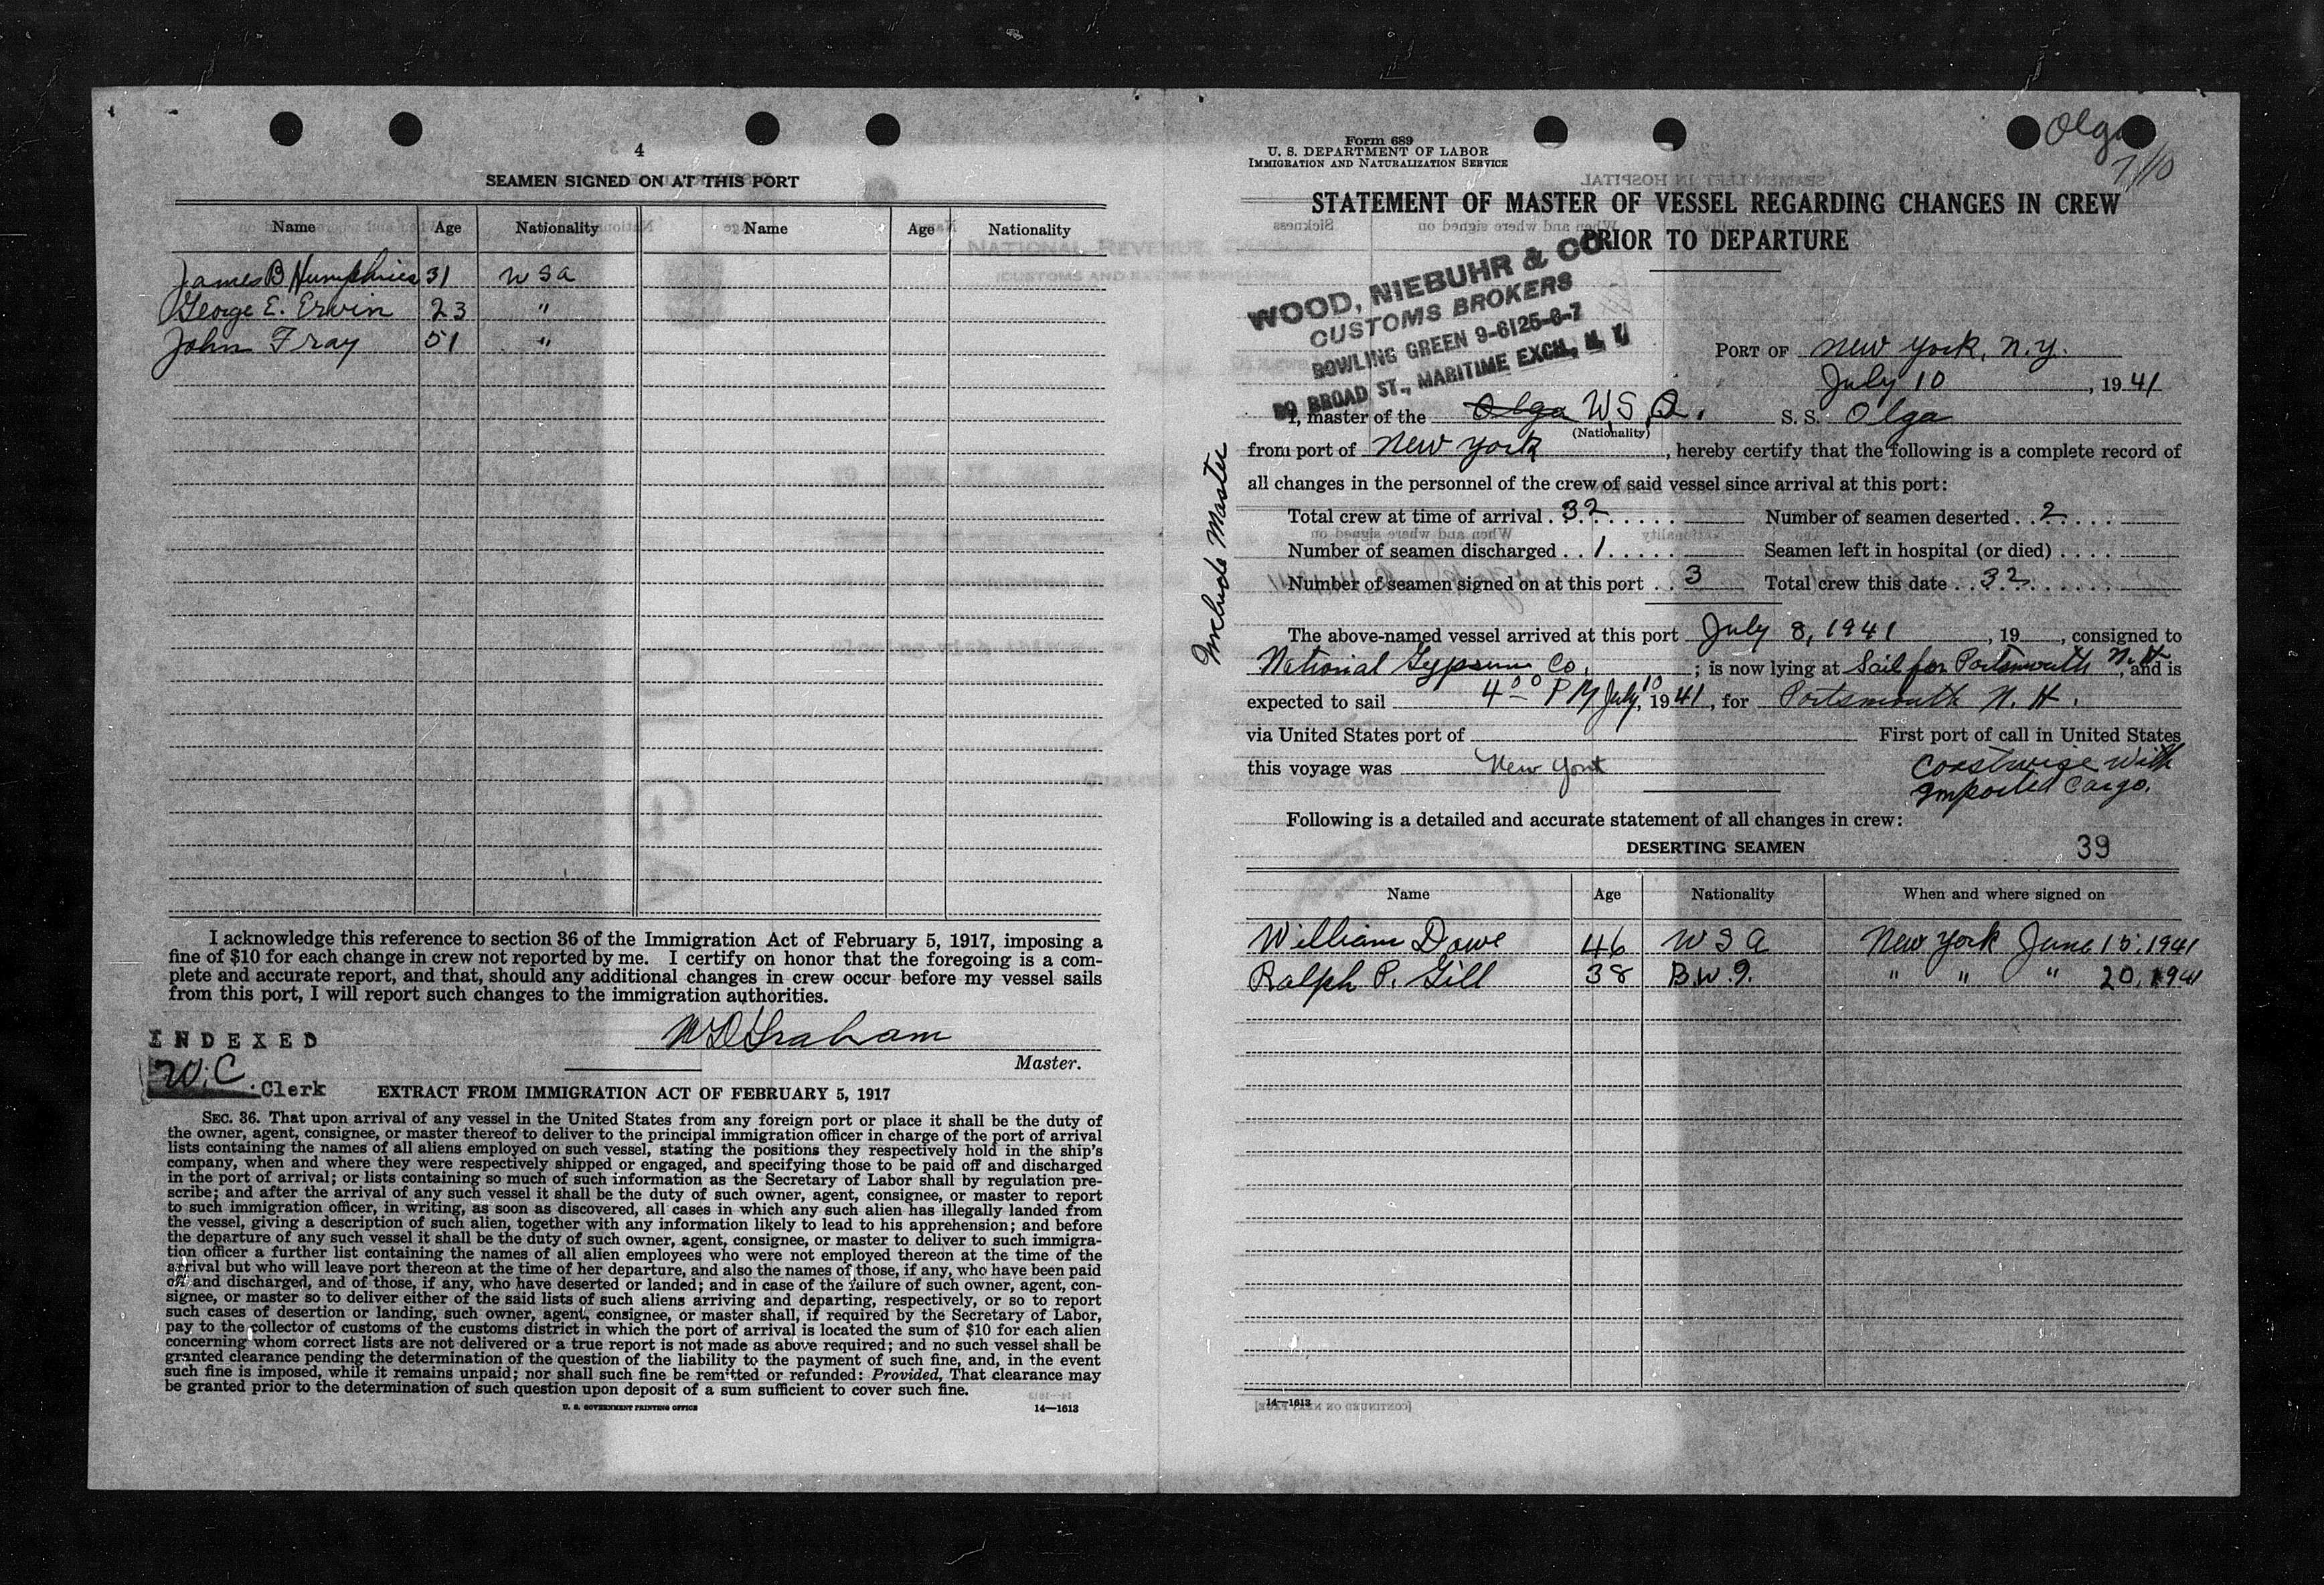 4
SEAMEN SIGNED ON AT THIS PORT
Name Age Nationality Name Age Nationality
James B Humphries 31 USA
George E. Ervin 23 "
John Fray 51 "
I acknowledge this reference to section 36 of the Immigration Act of February 5, 1917, imposing a
fine of $10 for each change in crew not reported by me. I certify on honor that the foregoing is a com-
plete and accurate report, and that, should any additional changes in crew occur before my vessel sails
from this port, I will report such changes to the immigration authorities.
Graham
Master.
INDEXED
W.C. Clerk
EXTRACT FROM IMMIGRATION ACT OF FEBRUARY 5, 1917
SEC. 36. That upon arrival of any vessel in the United States from any foreign port or place it shall be the duty of
the owner, agent, consignee, or master thereof to deliver to the principal immigration officer in charge of the port of arrival
lists containing the names of all aliens employed on such vessel, stating the positions they respectively hold in the ship's
company, when and where they were respectively shipped or engaged, and specifying those to be paid off and discharged
in the port of arrival; or lists containing so much of such information as the Secretary of Labor shall by regulation pre-
scribe; and after the arrival of any such vessel it shall be the duty of such owner, agent, consignee, or master to report
to such immigration officer, in writing, as soon as discovered, all cases in which any such alien has illegally landed from
the vessel, giving a description of such alien, together with any information likely to lead to his apprehension; and before
the departure of any such vessel it shall be the duty of such owner, agent, consignee, or master to deliver to such immigra-
tion officer a further list containing the names of all alien employees who were not employed thereon at the time of the
arrival but who will leave port thereon at the time of her departure, and also the names of those, if any, who have been paid
off and discharged, and of those, if any, who have deserted or landed; and in case of the failure of such owner, agent, con-
signee, or master so to deliver either of the said lists of such aliens arriving and departing, respectively, or so to report
such cases of desertion or landing, such owner, agent, consignee, or master shall, if required by the Secretary of Labor,
pay to the collector of customs of the customs district in which the port of arrival is located the sum of $10 for each alien
concerning whom correct lists are not delivered or a true report is not made as above required; and no such vessel shall be
granted clearance pending the determination of the question of the liability to the payment of such fine, and, in the event
such fine is imposed, while it remains unpaid; nor shall such fine be remitted or refunded: Provided, That clearance may
be granted prior to the determination of such question upon deposit of a sum sufficient to cover such fine.
U. S. GOVERNMENT PRINTING OFFICE 14—1613
Olga
7/10
Form 689
U. S. DEPARTMENT OF LABOR
IMMIGRATION AND NATURALIZATION SERVICE
STATEMENT OF MASTER OF VESSEL REGARDING CHANGES IN CREW
PRIOR TO DEPARTURE
WOOD, NIEBUHR & CO
CUSTOMS BROKERS
BOWLING GREEN 9-6125-6-7
80 BROAD ST., MARITIME EXCH., N. Y.
PORT OF New York, N.Y.
July 10, 1941
I, master of the Olga USA. S. S. Olga
(Nationality)
from port of New York, hereby certify that the following is a complete record of
all changes in the personnel of the crew of said vessel since arrival at this port:
Total crew at time of arrival . 32 Number of seamen deserted . . 2
Number of seamen discharged . . 1 Seamen left in hospital (or died)
Number of seamen signed on at this port . . 3 Total crew this date . . 32
Include Master
The above-named vessel arrived at this port July 8, 1941, 19 , consigned to
National Gypsum Co. ; is now lying at Sail for Portsmouth N.H., and is
expected to sail 4 00 PM July 10, 1941, for Portsmouth N. H.
via United States port of First port of call in United States
this voyage was New York
Coastwise with
Imported Cargo.
Following is a detailed and accurate statement of all changes in crew:
DESERTING SEAMEN 39
Name Age Nationality When and where signed on
William Dowe 46 USA New York June 15, 1941
Ralph P. Gill 38 B.W.I. " " " 20, 1941
14—1613